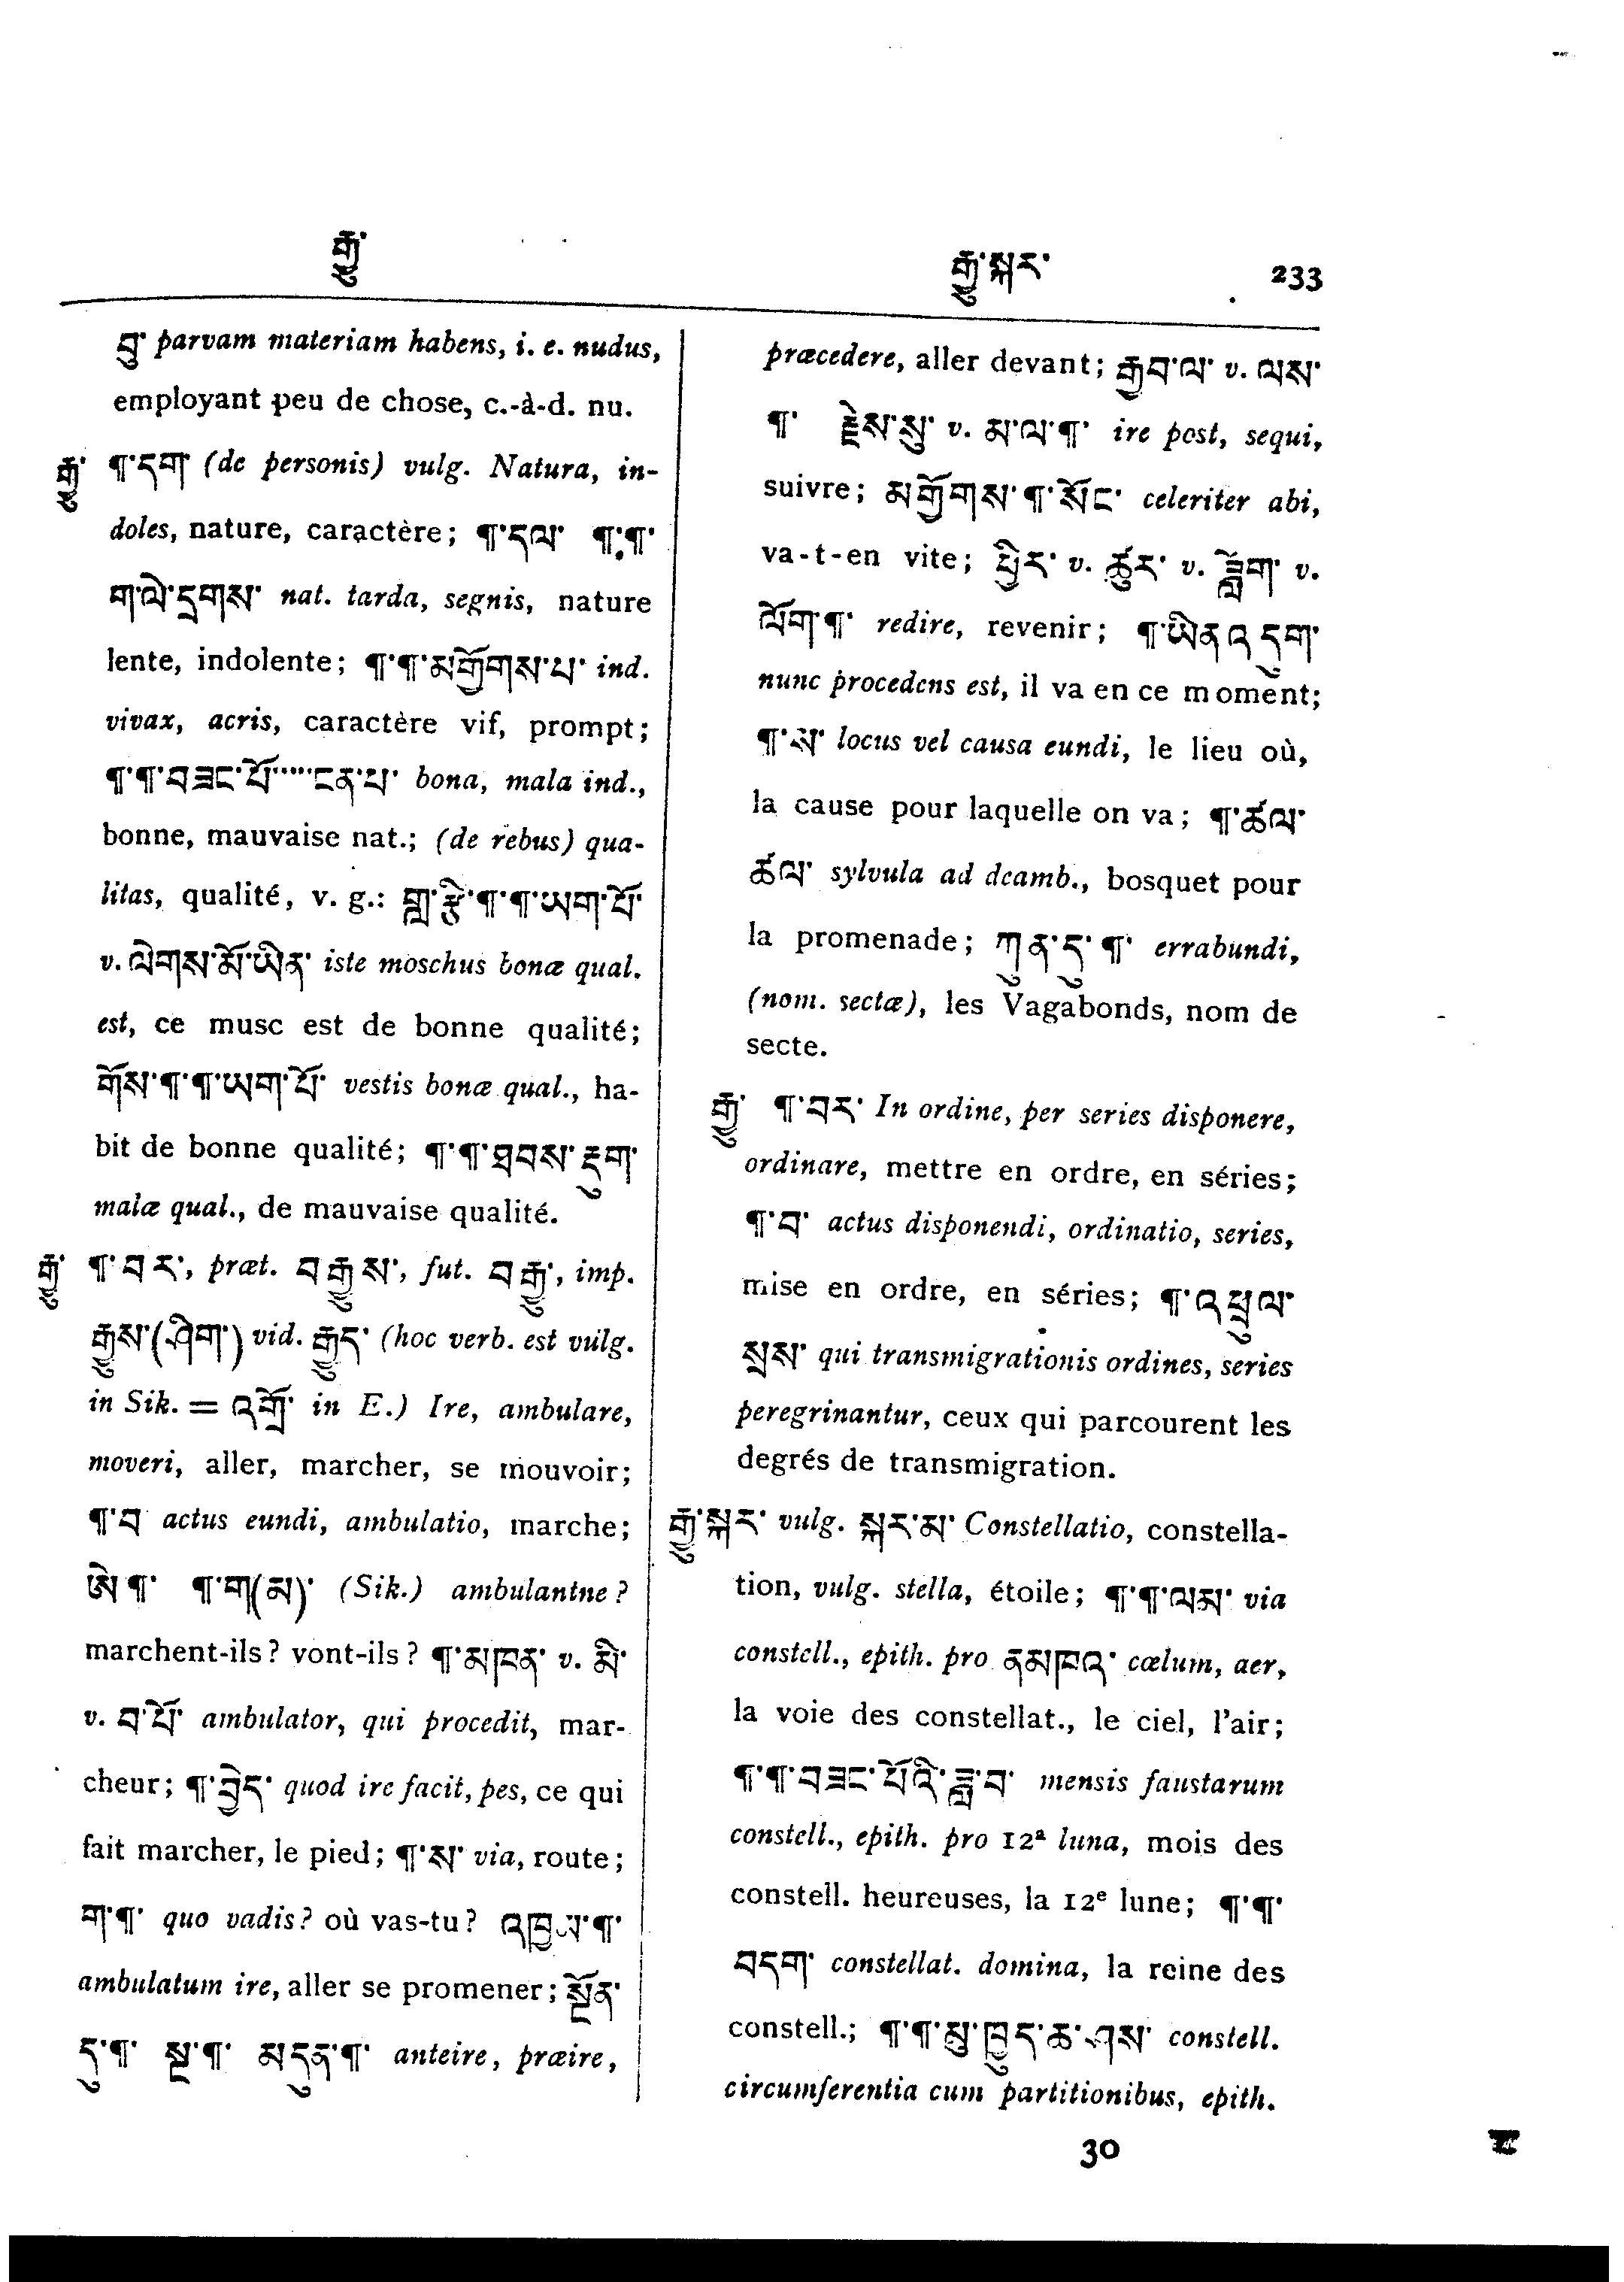 རྒྱུ་
རྒྱུ་སྐར་ 233
བྲུ་ parvam materiam habens, i. e. nudus,
employant peu de chose, c.-à-d. nu.
རྒྱུ་ ¶་དག་ (de personis) vulg. Natura, in-
doles, nature, caractère; ¶་དལ་ ¶་¶་
ག་ལེ་དྲགས་ nat. tarda, segnis, nature
lente, indolente; ¶་¶་མགྱོགས་པ་ ind.
vivax, acris, caractère vif, prompt;
¶་¶་བཟང་པོ་....ངན་པ་ bona, mala ind.,
bonne, mauvaise nat.; (de rebus) qua-
litas, qualité, v. g.: གླ་རྩི་¶་¶་ཡག་པོ་
v. ལེགས་མོ་ཡིན་ iste moschus bonæ qual.
est, ce musc est de bonne qualité;
གོས་¶་¶་ཡག་པོ་ vestis bonæ qual., ha-
bit de bonne qualité; ¶་¶་ཐབས་རྡུག་
malæ qual., de mauvaise qualité.
རྒྱུ་ ¶་བར་, præt. བརྒྱུས་, fut. བརྒྱུ་, imp.
རྒྱུས་(ཤིག་) vid. རྒྱུད་ (hoc verb. est vulg.
in Sik. = འགྲོ་ in E.) Ire, ambulare,
moveri, aller, marcher, se mouvoir;
¶་བ actus eundi, ambulatio, marche;
ཨེ་¶་ ¶་ག(མ)་ (Sik.) ambulantne?
marchent-ils? vont-ils? ¶་མཁན་ v. མི་
v. བ་པོ་ ambulator, qui procedit, mar-
cheur; ¶་བྱེད་ quod ire facit, pes, ce qui
fait marcher, le pied; ¶་ས་ via, route;
ག་¶་ quo vadis? où vas-tu? ¶་
ambulatum ire, aller se promener; སྔོན་
དུ་¶་ སྔ་¶་ མདུན་¶་ anteire, præire,
præcedere, aller devant; རྒྱབ་ལ་ v. ལས་
¶་ རྗེས་སུ་ v. མ་ལ་¶་ ire post, sequi,
suivre; མགྱོགས་¶་སོང་ celeriter abi,
va-t-en vite; ཕྱིར་ v. ཚུར་ v. ཟློག་ v.
ལོག་¶་ redire, revenir; ¶་ཡིནའདུག་
nunc procedens est, il va en ce moment;
¶་ས་ locus vel causa eundi, le lieu où,
la cause pour laquelle on va; ¶་ཚལ་
ཚལ་ sylvula ad deamb., bosquet pour
la promenade; ཀུན་དུ་¶་ errabundi,
(nom. sectæ), les Vagabonds, nom de
secte.
རྒྱུ་ ¶་བར་ In ordine, per series disponere,
ordinare, mettre en ordre, en séries;
¶་བ་ actus disponendi, ordinatio, series,
mise en ordre, en séries; ¶་འཕྲུལ་
སྲས་ qui transmigrationis ordines, series
peregrinantur, ceux qui parcourent les
degrés de transmigration.
རྒྱུ་སྐར་ vulg. སྐར་མ་ Constellatio, constella-
tion, vulg. stella, étoile; ¶་¶་ལམ་ via
constell., epith. pro ནམཁའ་ cœlum, aer,
la voie des constellat., le ciel, l'air;
¶་¶་བཟང་པོའི་ཟླ་བ་ mensis faustarum
constell., epith. pro 12ª luna, mois des
constell. heureuses, la 12ᵉ lune; ¶་¶་
བདག་ constellat. domina, la reine des
constell.; ¶་¶་མུ་ཁྱུད་ཆ་ཤས་ constell.
circumferentia cum partitionibus, epith.
30